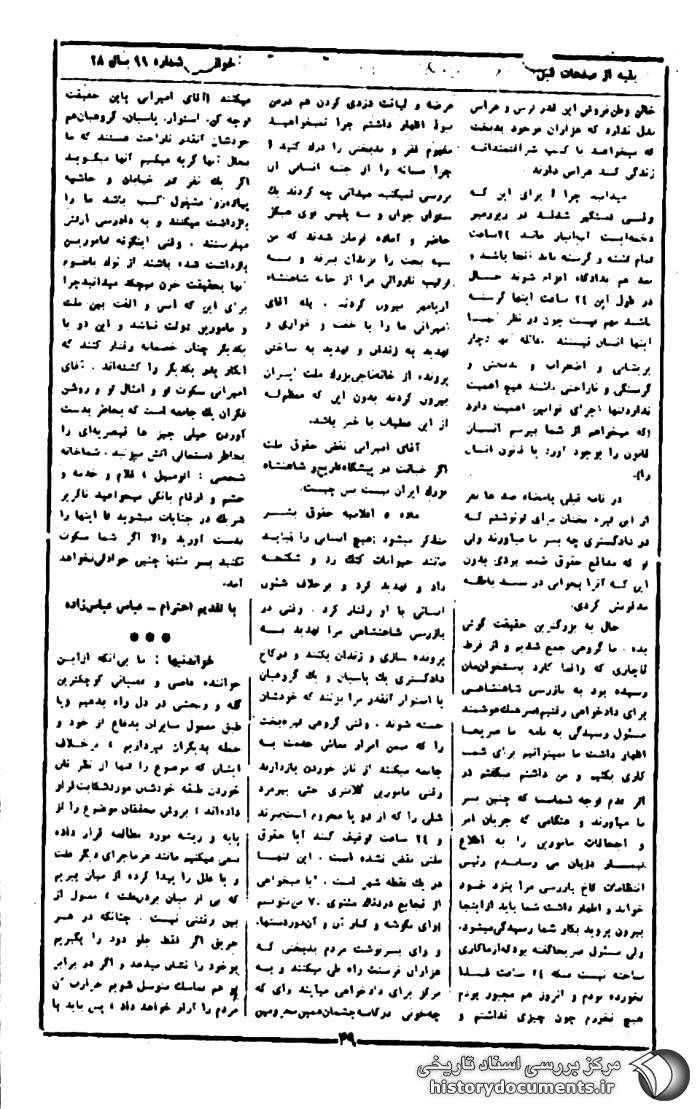 بقیه از صفحات قبل
شماره ۹۹ سال ۲۸
خائن وطن‌فروش این قدر ترس و هراس
بدل ندارد که هزاران موجود بدبخت
که میخواهند با کسب شرافتمندانه
زندگی کنند هراس دارند.
میدانید چرا ؟ برای این که
تمام تشنه و گرسنه ماند آنجا باشند و
بعد هم بدادگاه اعزام شوند حال
در طول این ۲۴ ساعت اینها گرسنه
باشند مهم نیست چون در نظر
اینها انسان نیستند
پریشانی و اضطراب و بدبختی و
گرسنگی و ناراحتی باشند هیچ اهمیت
ندارد تنها اجرای قوانین اهمیت دارد
(که میخواهم از شما بپرسم انسان
قانون را بوجود آورد یا قانون انسان
را).
در نامه قبلی
از این تیره بختان برای تو نوشتم که
در دادگستری چه بسر ما میاورند ولی
تو که مدافع حقوق ضعفا بودی بدون
این که آنرا بخوانی در سبد باطله
مدفونش کردی.
حال به بزرگترین حقیقت گوش
بده . ما گروهی جمع شدیم و از فرط
ناچاری که واقعا کارد باستخوانمان
رسیده بود به بازرسی شاهنشاهی
برای دادخواهی رفتیم سرهنگ هوشمند
مسئول رسیدگی به نامه ما صریحا
اظهار داشت ما نمیتوانیم برای شما
کاری بکنیم و من داشتم میگفتم در
اثر عدم توجه شماست که چنین بسر
ما میاورند و هنگامی که جریان امر
و اجحافات مامورین را به اطلاع
انتظامات کاخ بازرسی مرا بنزد خود
خواند و اظهار داشت شما باید از اینجا
بیرون بروید بکار شما رسیدگی میشود.
ولی مسئول صریحا گفته بود که از ما کاری
ساخته نیست منکه ۲۴ ساعت غذا
نخورده بودم و امروز هم مجبور بودم
هیچ نخورم چون چیزی نداشتم و
عرضه و لیاقت دزدی کردن هم در من
نبود اظهار داشتم چرا نمیخواهید
مفهوم فقر و بدبختی را درک کنید ؟
چرا مسائل را از جنبه انسانی آن
بررسی نمیکنید میدانی چه کردند یک
ستوان جوان و سه پلیس قوی هیکل
حاضر و آماده فرمان شدند که من
سیه بخت را بزندان ببرند و به
ترتیب ناروائی مرا از خانه شاهنشاه
آریامهر بیرون کردند . بله آقای
امیرانی ما را با خفت و خواری و
تهدید به زندان و تهدید به ساختن
پرونده از خانه ناجی بزرگ ملت ایران
بیرون کردند بدون این که معظم‌له
از این عملیات با خبر باشد.
آقای امیرانی نقض حقوق ملت
اگر خیانت در پیشگاه تاریخ و شاهنشاه
بزرگ ایران نیست پس چیست.
ماده ۵ اعلامیه حقوق بشر
متذکر میشود: هیچ انسانی را نباید
مانند حیوانات کتک زد و شکنجه
داد و تهدید کرد و برخلاف شئون
انسانی با او رفتار کرد . وقتی در
بازرسی شاهنشاهی مرا تهدید به
پرونده سازی و زندان بکنند و در کاخ
دادگستری یک پاسبان و یک گروهبان
یا استوار آنقدر مرا بزنند که خودشان
خسته شوند . وقتی گروهی تیره‌بخت
را که ضمن امرار معاش خدمت به
جامعه میکنند از نان خوردن بازدارند
وقتی مامورین کلانتری حتی پیرمرد
شلی را که از دو پا محروم است ببرند
و ۲۴ ساعت توقیف کنند آیا حقوق
ملتی نقض نشده است . این تنها
در یک نقطه شهر است .
از فجایع دردناک مثنوی ۷۰ من بنویسم
وای بگوشه و کنار آن و آن دوردستها.
و وای بسرنوشت مردم بدبختی که
هزاران فرسنگ راه طی میکنند و به
مرکز برای دادخواهی میایند وای که
چه خونی در کاسه چشمان همین محرومین
میکنند (آقای امیرانی باین حقیقت
توجه کن. استوار، پاسبان، گروهبان هم
خودشان آنقدر ناراحت هستند که ما
بحال آنها گریه میکنیم آنها میگویند
اگر یک نفر کنار خیابان و حاشیه
پیاده‌رو مشغول کسب باشد ما را
بازداشت میکنند و به دادرسی ارتش
میفرستند . وقتی اینگونه مامورین
بازداشت شده باشند از نوک باطوم
آنها بحقیقت خون میچکد میدانید چرا
برای این که انس و الفت بین ملت
و مامورین دولت نباشد و این دو با
یکدیگر چنان خصمانه رفتار کنند که
انگار پدر یکدیگر را کشته‌اند . آقای
امیرانی سکوت تو و امثال تو و روشن
فکران یک جامعه است که بخاطر بدست
آوردن خیلی چیز ها قیصریه‌ای را
بخاطر دستمالی آتش میزنید . شما خانه
شخصی ؛ اتومبیل ؛ کلام و خدمه و
حشم و ارقام بانکی میخواهید ناگزیر
شریک در جنایات میشوید تا اینها را
بدست آورید والا اگر شما سکوت
نکنید بسر ملتها چنین حوادثی نخواهد
آمد.
با تقدیم احترام – عباس عباس‌زاده
● ● ●
خواندنیها : ما بی‌آنکه از این
خواننده عاصی و عصبانی کوچکترین
گله و رنجشی در دل راه بدهیم و یا
طبق معمول سایرین بدفاع از خود و
حمله بدیگران بپردازیم ؛ برخلاف
ایشان که موضوع را تنها از نظر نان
خوردن طبقه خودشان مورد شکایت قرار
داده‌اند ؛ بروش محققان موضوع را از
پایه و ریشه مورد مطالعه قرار داده
سعی میکنیم مانند هر ماجرای دیگر علت
و یا علل را پیدا کرده از میان ببریم
که بی از میان بردن علت ؛ معلول از
بین رفتنی نیست . چنانکه در هر
حریق اگر فقط جلو دود را بگیریم
بو خود را نشان میدهد و اگر در برابر
بو هم بماسک متوسل شویم حرارت آن
مردم را آزار خواهد داد ؛ پس باید با
۴۹
مرکز بررسی اسناد تاریخی
historydocuments.ir